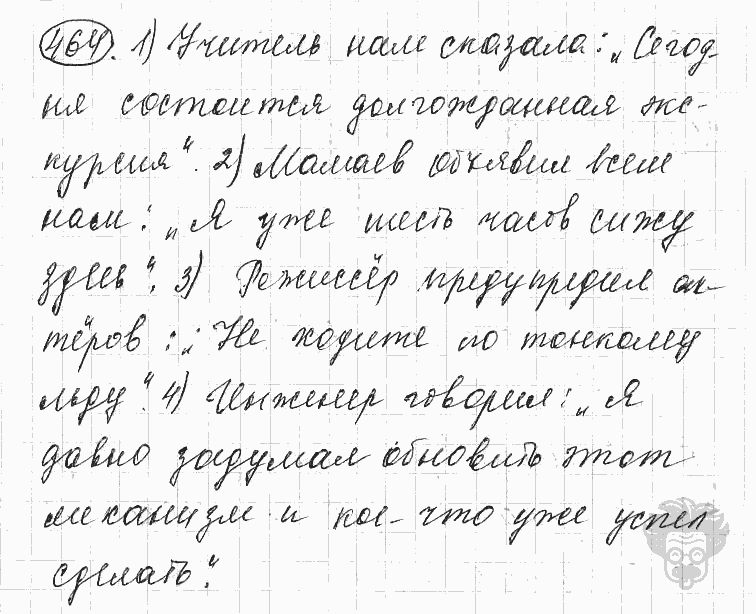 464. 1) Учитель нам сказала: „Сегод-
ня состоится долгожданная экс-
курсия“. 2) Мамаев объявил всем
нам: „Я уже шесть часов сижу
здесь“. 3) Режиссёр предупредил ак-
тёров: „Не ходите по тонкому
льду“. 4) Инженер говорил: „Я
давно задумал обновить этот
механизм и кое-что уже успел
сделать“.